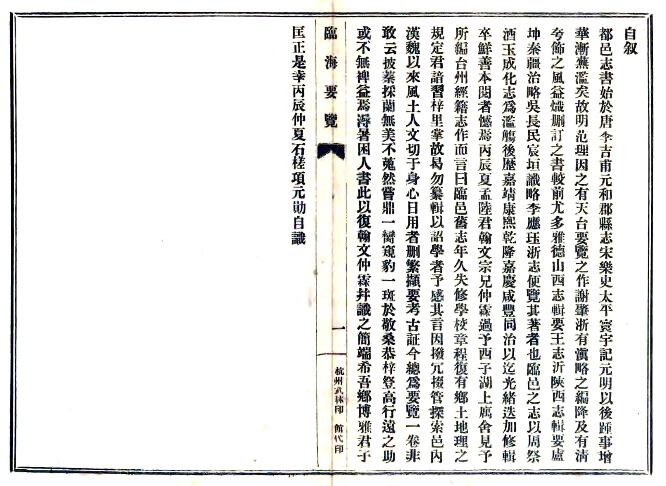 自叙
都邑志書始於唐李吉甫元和郡縣志宋樂史太平寰宇記元明以後踵事增
華漸蕪濫矣故明范理因之有天台要覽之作謝肇浙有滇略之編降及有清
夸飾之風益熾删訂之書較前尤多雅德山西志輯要王志沂陝西志輯要盧
坤秦疆治略吳長民宸垣識略李應珏浙志便覽其著者也臨邑之志以周祭
酒玉成化志爲濫觴後歷嘉靖康熙乾隆嘉慶咸豐同治以迄光緒迭加修輯
卒鮮善本閱者憾焉丙辰夏孟陸君翰文宗兄仲霖過予西子湖上寓舍見予
所編台州經籍志作而言曰臨邑舊志年久失修學校章程復有鄉土地理之
規定君諳習梓里掌故曷勿纂輯以詔學者予感其言因撥冗掇管探索邑內
漢魏以來風土人文切于身心日用者删繁擷要考古証今總爲要覽一卷非
敢云披蓁採蘭無美不蒐然嘗鼎一臠窺豹一斑於敬桑恭梓登高行遠之助
或不無裨益焉溽暑困人書此以復翰文仲霖幷識之簡端希吾鄉博雅君子
臨海要覽
一
杭州武林印書館代印
匡正是幸丙辰仲夏石槎項元勛自識